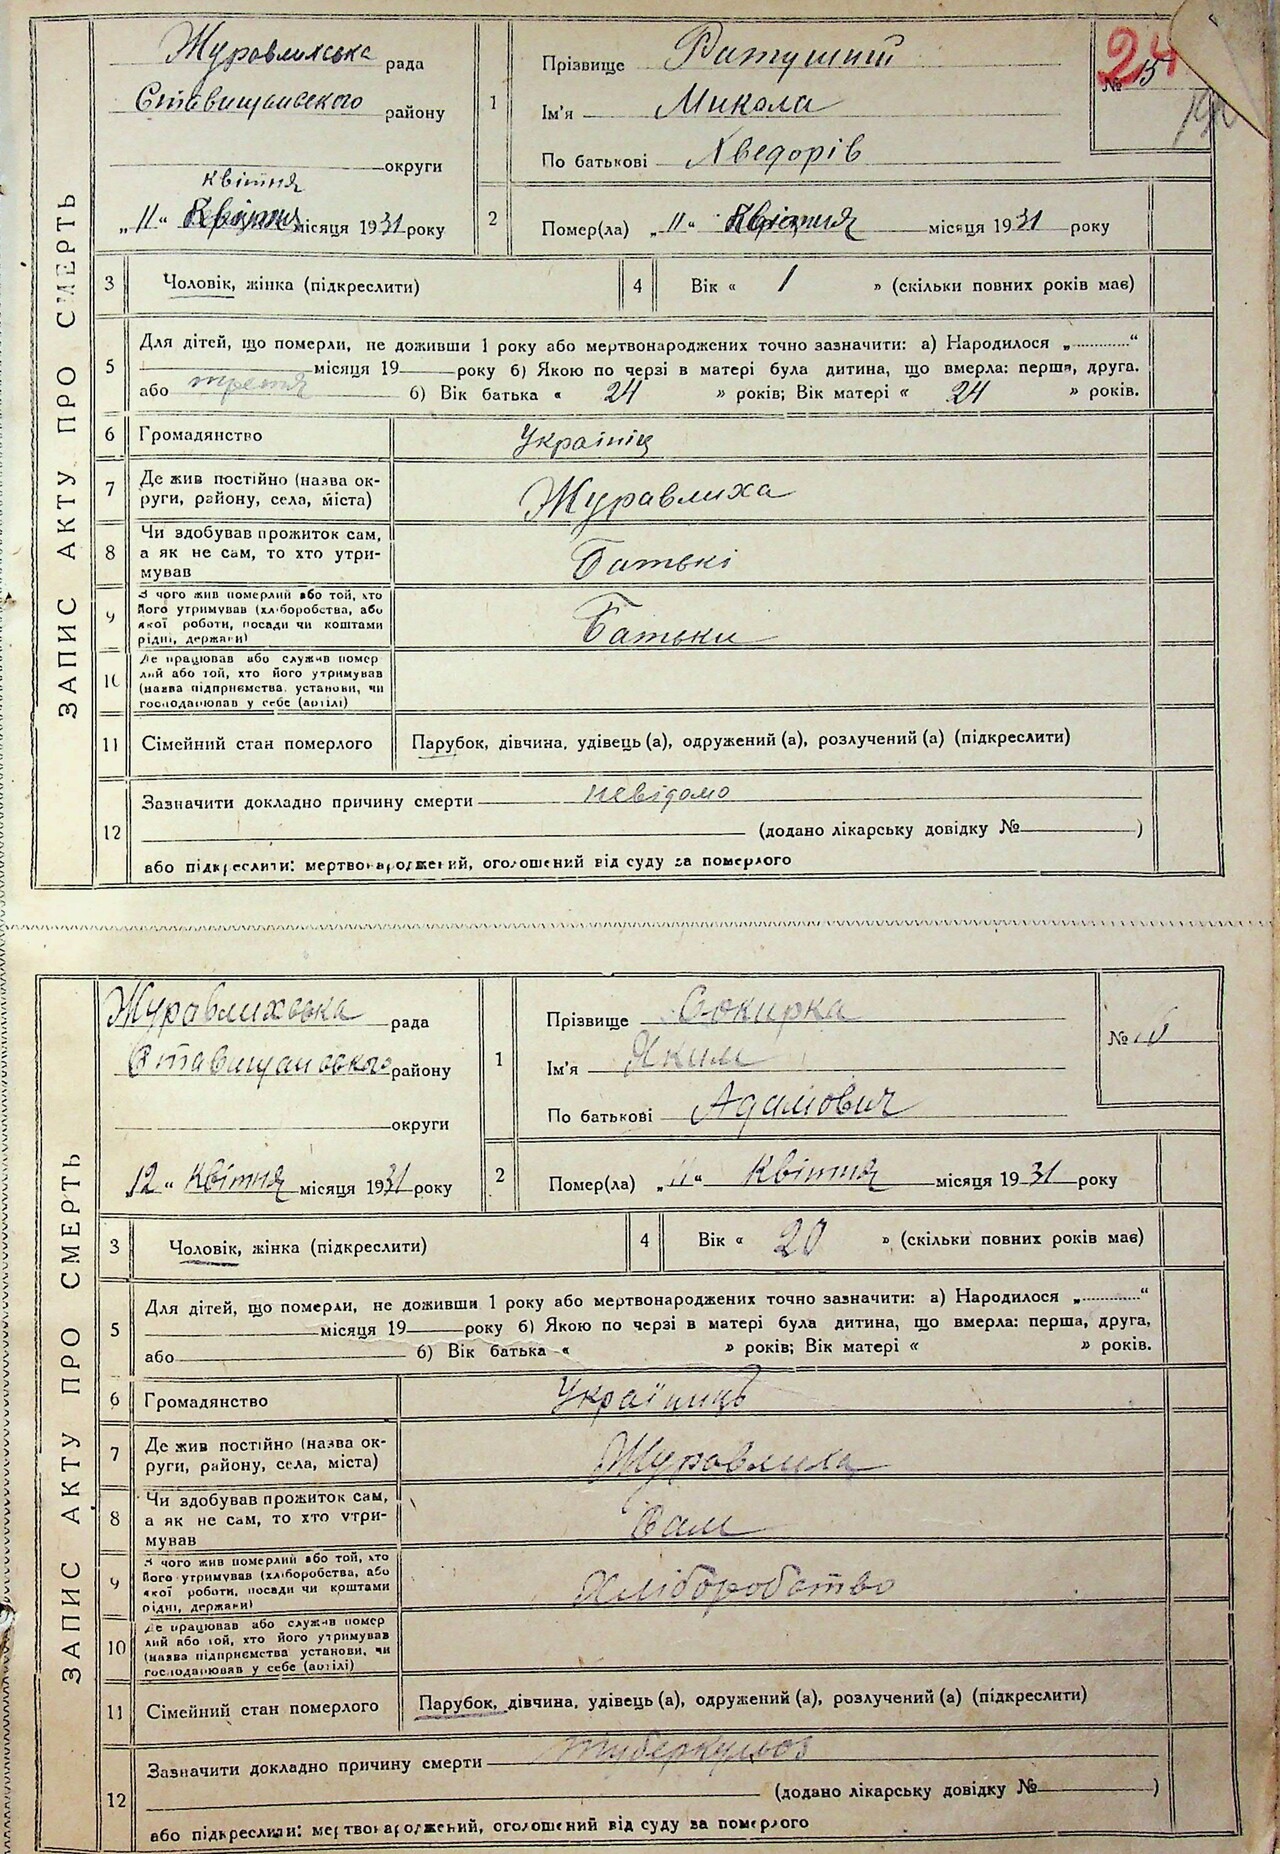 ЗАПИС АКТУ ПРО СМЕРТЬ
Журавлихська рада
Ставищанського району
округи
квітня
„11“ Квітня місяця 1931 року
1
Прізвище Ратушний
Ім'я Микола
По батькові Хведорів
24
№ 15
2
Помер(ла) „11“ Квітня місяця 1931 року
3 Чоловік, жінка (підкреслити)
4 Вік « 1 » (скільки повних років має)
5
Для дітей, що померли, не доживши 1 року або мертвонароджених точно зазначити: а) Народилося „............“
місяця 19 року б) Якою по черзі в матері була дитина, що вмерла: перша, друга.
або третя б) Вік батька « 24 » років; Вік матері « 24 » років.
6 Громадянство Українц
7 Де жив постійно (назва ок-
руги, району, села, міста) Журавлиха
8 Чи здобував прожиток сам,
а як не сам, то хто утри-
мував Батькі
9 З чого жив померлий або той, хто
його утримував (хліборобства, або
якої роботи, посади чи коштами
рідні, держави) Батьки
10 Де працював або служив помер
лий або той, хто його утримував
(назва підприємства, установи, чи
господарював у себе (артілі)
11 Сімейний стан померлого Парубок, дівчина, удівець (а), одружений (а), розлучений (а) (підкреслити)
12
Зазначити докладно причину смерти невідомо
(додано лікарську довідку № )
або підкреслити: мертвонароджений, оголошений від суду за померлого
ЗАПИС АКТУ ПРО СМЕРТЬ
Журавлихська рада
Ставищанського району
округи
„12“ Квітня місяця 1931 року
1
Прізвище Сокирка
Ім'я Яким
По батькові Адамович
№
2
Помер(ла) „11“ Квітня місяця 1931 року
3 Чоловік, жінка (підкреслити)
4 Вік « 20 » (скільки повних років має)
5
Для дітей, що померли, не доживши 1 року або мертвонароджених точно зазначити: а) Народилося „............“
місяця 19 року б) Якою по черзі в матері була дитина, що вмерла: перша, друга,
або б) Вік батька « » років; Вік матері « » років.
6 Громадянство Україниць
7 Де жив постійно (назва ок-
руги, району, села, міста) Журавлиха
8 Чи здобував прожиток сам,
а як не сам, то хто утри-
мував Сам
9 З чого жив померлий або той, хто
його утримував (хліборобства, або
якої роботи, посади чи коштами
рідні, держави) Хліборобство
10 Де працював або служив помер
лий або той, хто його утримував
(назва підприємства установи, чи
господарював у себе (артілі)
11 Сімейний стан померлого Парубок, дівчина, удівець (а), одружений (а), розлучений (а) (підкреслити)
12
Зазначити докладно причину смерти туберкульоз
(додано лікарську довідку № )
або підкреслити: мертвонароджений, оголошений від суду за померлого